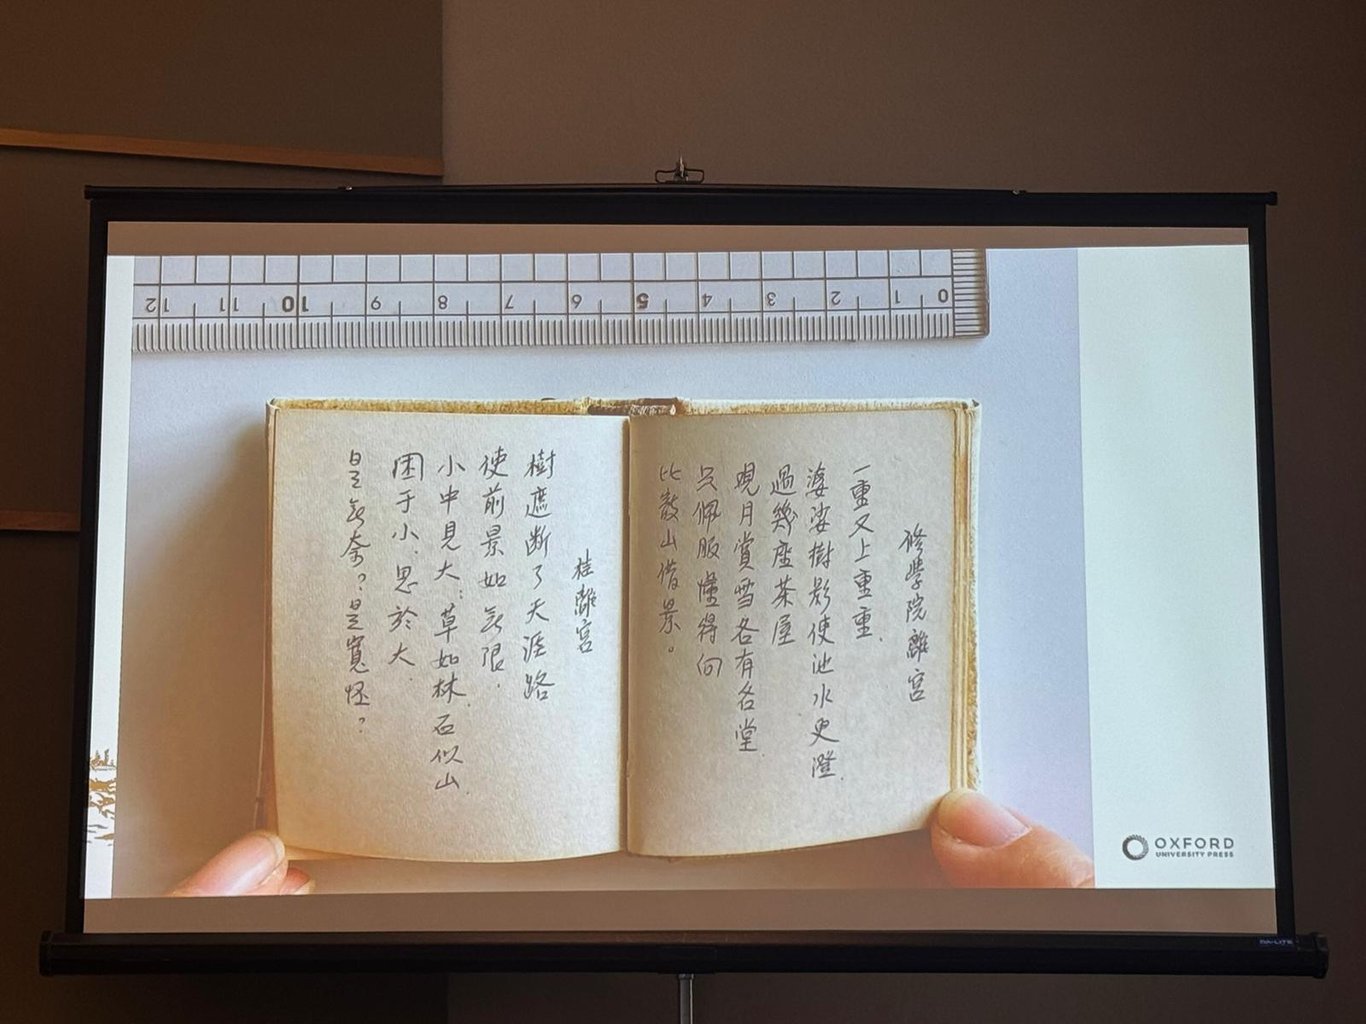 12 11 10 9 8 7 6 5 4 3 2 1 0
修學院離宮
一重又上重重.
婆娑樹影使池水更澄.
過幾座茶屋
觀月賞雪各有名堂.
只佩服懂得向
比叡山借景。
桂離宮
樹遮断了天涯路
使前景如無限.
小中見大:草如林.石似山.
困于小、思於大.
是無奈?是寬怀?
OXFORD
UNIVERSITY PRESS
DA-LITE